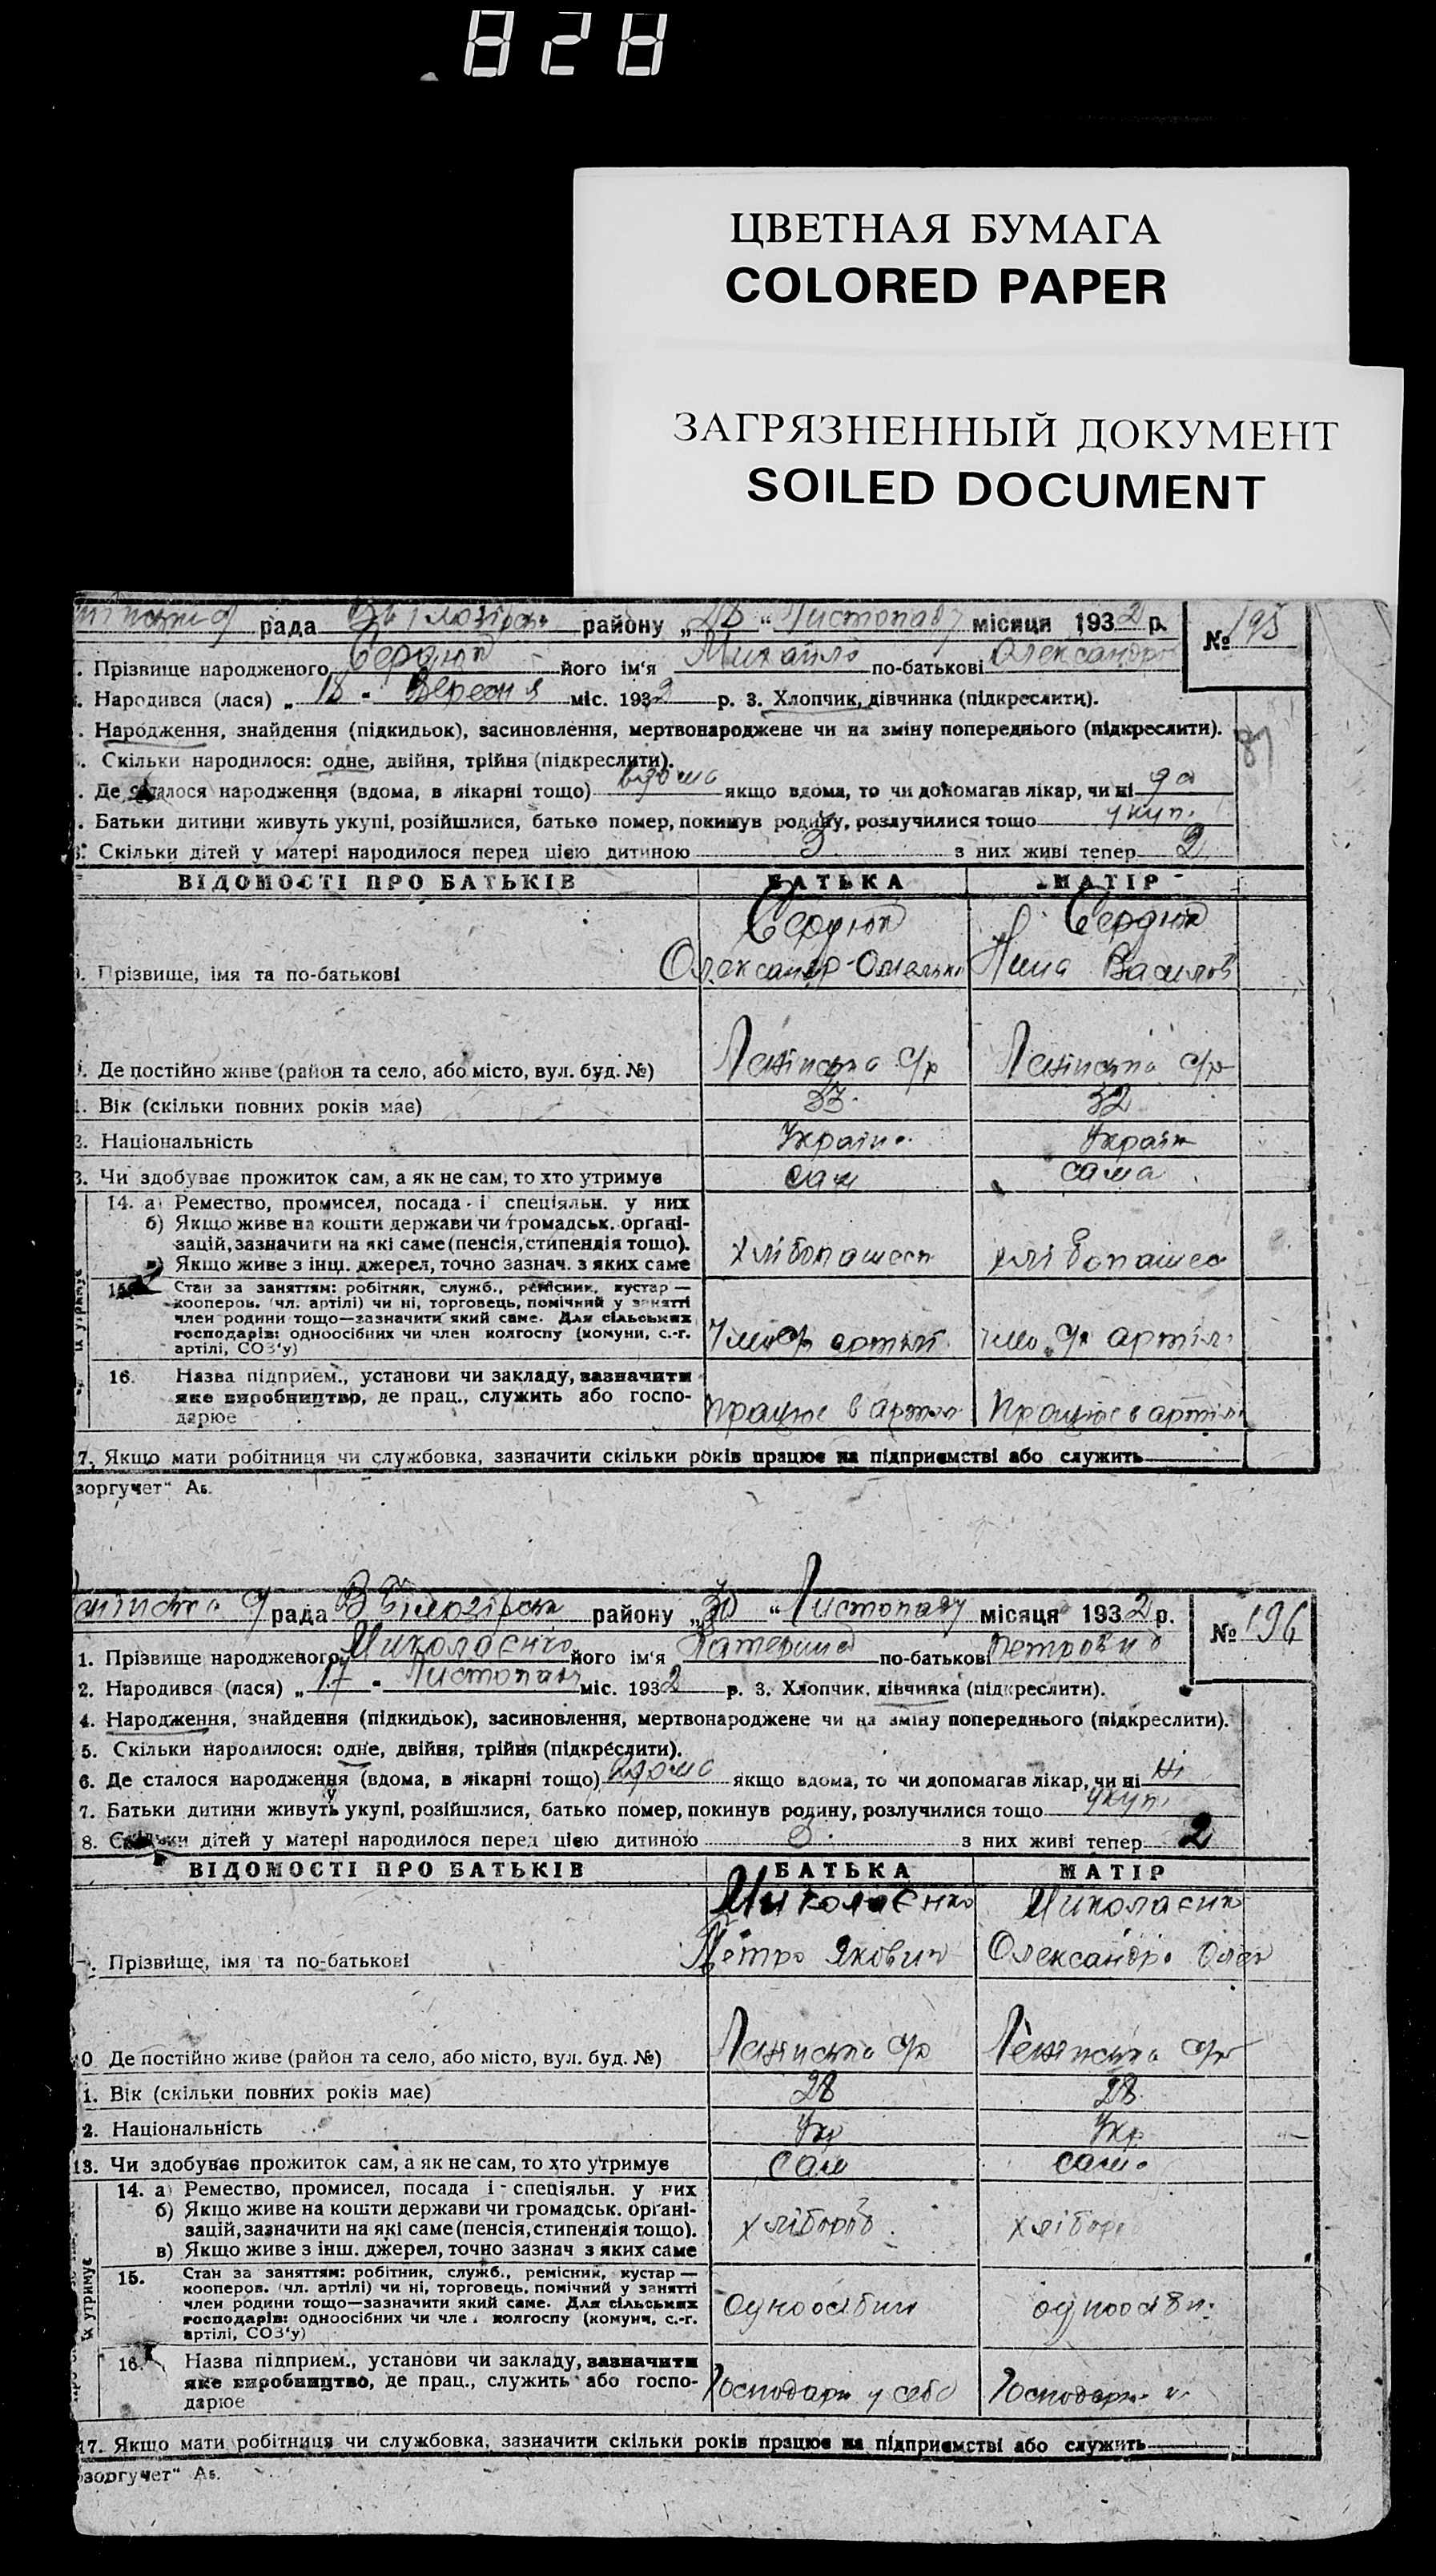 828
ЦВЕТНАЯ БУМАГА
COLORED PAPER
ЗАГРЯЗНЕННЫЙ ДОКУМЕНТ
SOILED DOCUMENT
рада району „28“ Листопаду місяця 1932 р. № 195
. Прізвище народженого Сердюк його ім‘я Михайло по-батькові Олександр
. Народився (лася) „18 - Вересня міс. 1932 р. 3. Хлопчик, дівчинка (підкреслити).
. Народження, знайдення (підкидьок), засиновлення, мертвонароджене чи на зміну попереднього (підкреслити).
. Скільки народилося: одне, двійня, трійня (підкреслити).
. Де сталося народження (вдома, в лікарні тощо) вдома якщо вдома, то чи допомагав лікар, чи ні да
. Батьки дитини живуть укупі, розійшлися, батько помер, покинув родину, розлучилися тощо укуп.
8. Скільки дітей у матері народилося перед цією дитиною 3 з них живі тепер 2
ВІДОМОСТІ ПРО БАТЬКІВ БАТЬКА МАТІР
Сердюк Сердюк
. Прізвище, імя та по-батькові Олександр Омельк Нина Васылів
. Де постійно живе (район та село, або місто, вул. буд. №) Ленінська с/р Ленінська с/р
1. Вік (скільки повних років має) 33 32
2. Національність Україн. Україн
3. Чи здобуває прожиток сам, а як не сам, то хто утримує сам сама
14. а) Ремество, промисел, посада і спеціяльн. у них
б) Якщо живе на кошти держави чи громадськ. органі-
зацій, зазначити на які саме (пенсія, стипендія тощо).
в) Якщо живе з інш. джерел, точно зазнач. з яких саме хлібопашест хлібопашес
15. Стан за заняттям: робітник, служб., ремісник, кустар —
кооперов. (чл. артілі) чи ні, торговець, помічний у занятті
член родини тощо—зазначити який саме. Для сільських
господарів: одноосібних чи член колгоспу (комуни, с.-г.
артілі, СОЗ‘у) артілі артіл.
их утримує
16. Назва підприєм., установи чи закладу, зазначити
яке виробництво, де прац., служить або госпо-
дарює працює в артіл працює в артіл
7. Якщо мати робітниця чи службовка, зазначити скільки років працює на підприємстві або служить
зоргучет“ Аб.
рада В Білозірськ району „30“ Листопаду місяця 1932 р. № 196
1. Прізвище народженого Миколаєнко його ім‘я Катерина по-батькові Петровна
2. Народився (лася) „17 - Листопад міс. 1932 р. 3. Хлопчик, дівчинка (підкреслити).
4. Народження, знайдення (підкидьок), засиновлення, мертвонароджене чи на зміну попереднього (підкреслити).
5. Скільки народилося: одне, двійня, трійня (підкреслити).
6. Де сталося народження (вдома, в лікарні тощо) вдома якщо вдома, то чи допомагав лікар, чи ні Ні
7. Батьки дитини живуть укупі, розійшлися, батько помер, покинув родину, розлучилися тощо укуп.
8. Скільки дітей у матері народилося перед цією дитиною 3 з них живі тепер 2
ВІДОМОСТІ ПРО БАТЬКІВ БАТЬКА МАТІР
Миколаєнко Миколаєнк
. Прізвище, імя та по-батькові Петро Якович Олександра Олек
0 Де постійно живе (район та село, або місто, вул. буд. №) Ленінська с/р Ленінська с/р
1. Вік (скільки повних років має) 28 28
2. Національність Укр Укр
13. Чи здобуває прожиток сам, а як не сам, то хто утримує сам сама
14. а) Ремество, промисел, посада і спеціяльн. у них
б) Якщо живе на кошти держави чи громадськ. органі-
зацій, зазначити на які саме (пенсія, стипендія тощо).
в) Якщо живе з інш. джерел, точно зазнач з яких саме хлібороб хлібороб
15. Стан за заняттям: робітник, служб., ремісник, кустар —
кооперов. (чл. артілі) чи ні, торговець, помічний у занятті
член родини тощо—зазначити який саме. Для сільських
господарів: одноосібних чи чле. колгоспу (комуни, с.-г.
артілі, СОЗ‘у) одноосібни одноосібн.
их утримує
16. Назва підприєм., установи чи закладу, зазначити
яке виробництво, де прац., служить або госпо-
дарює Господарю у себе Господарю
17. Якщо мати робітниця чи службовка, зазначити скільки років працює на підприємстві або служить
зоргучет“ Аб.